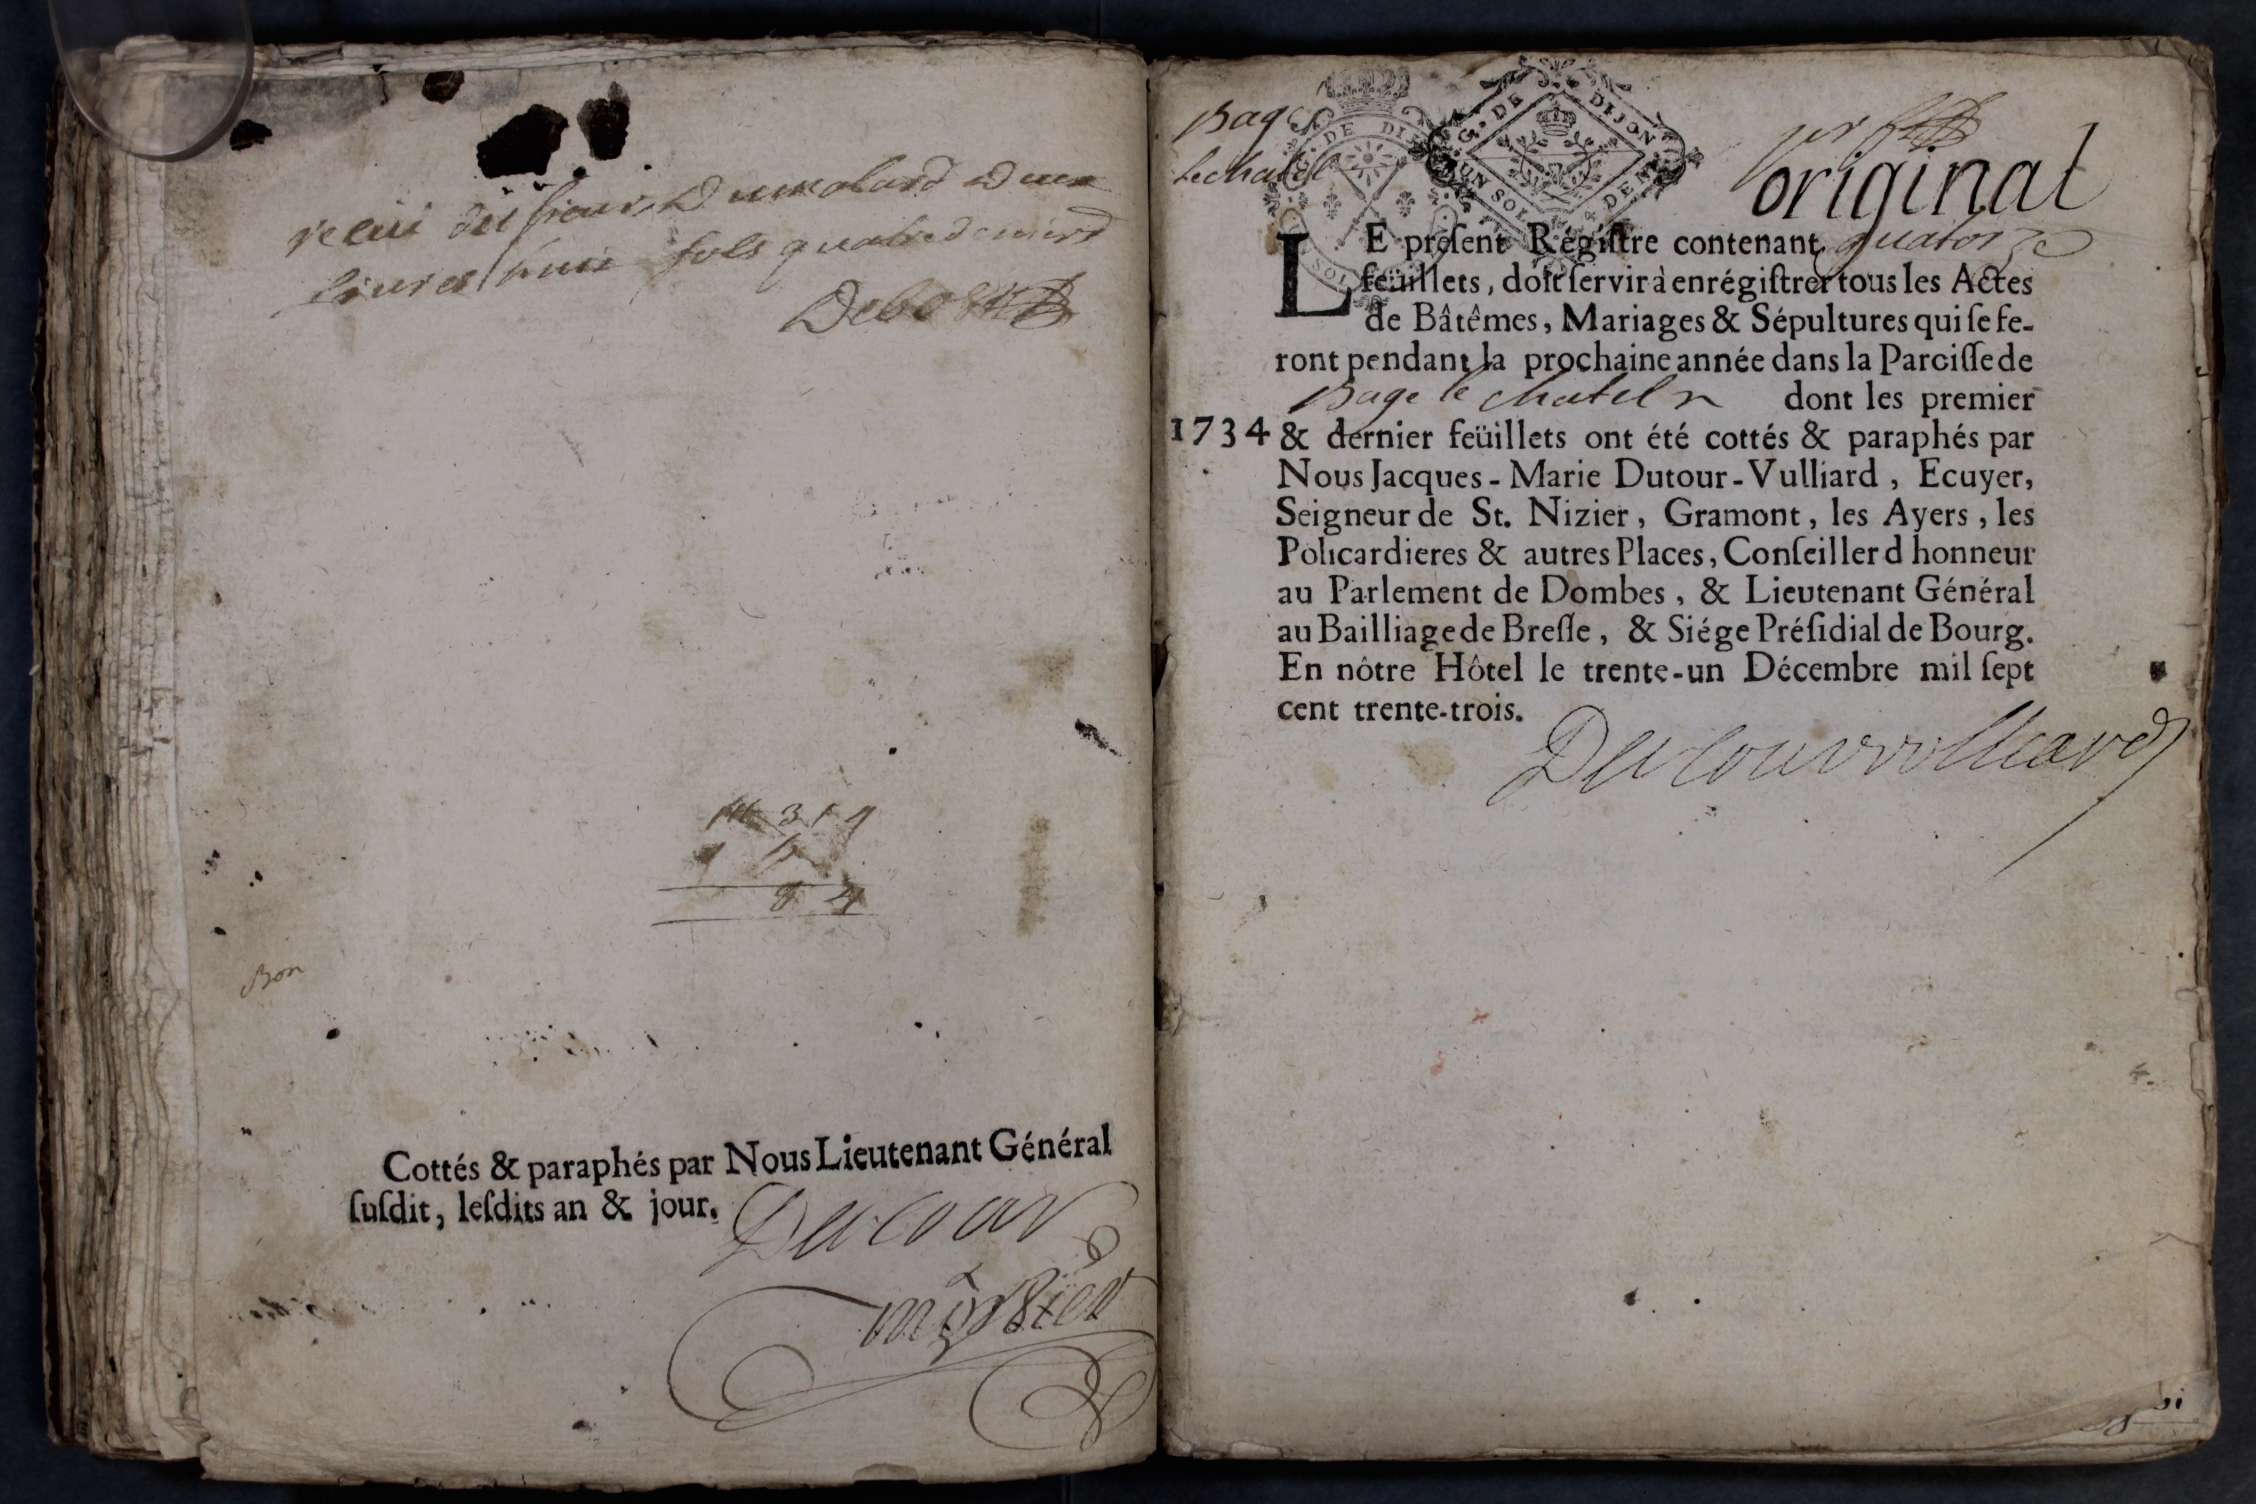 receu du sieur Dumolard deux
livres huit sols quatre deniers
Debost
8 4
Bon
Cottés & paraphés par Nous Lieutenant Général
ſuſdit, leſdits an & jour.
Dutour
Bage
le chatel
G. DE DIJON
UN SOL 4 DEN
original
LE preſent Régiſtre contenant quatorze
feüillets, doit ſervir à enrégiſtrer tous les Actes
de Bâtêmes, Mariages & Sépultures qui ſe fe-
ront pendant la prochaine année dans la Paroiſſe de
Bage le chatel dont les premier
1734 & dernier feüillets ont été cottés & paraphés par
Nous Jacques-Marie Dutour-Vulliard, Ecuyer,
Seigneur de St. Nizier, Gramont, les Ayers, les
Policardieres & autres Places, Conſeiller d honneur
au Parlement de Dombes, & Lieutenant Général
au Bailliage de Breſſe, & Siége Préſidial de Bourg.
En nôtre Hôtel le trente-un Décembre mil ſept
cent trente-trois.
Dutour vulliard